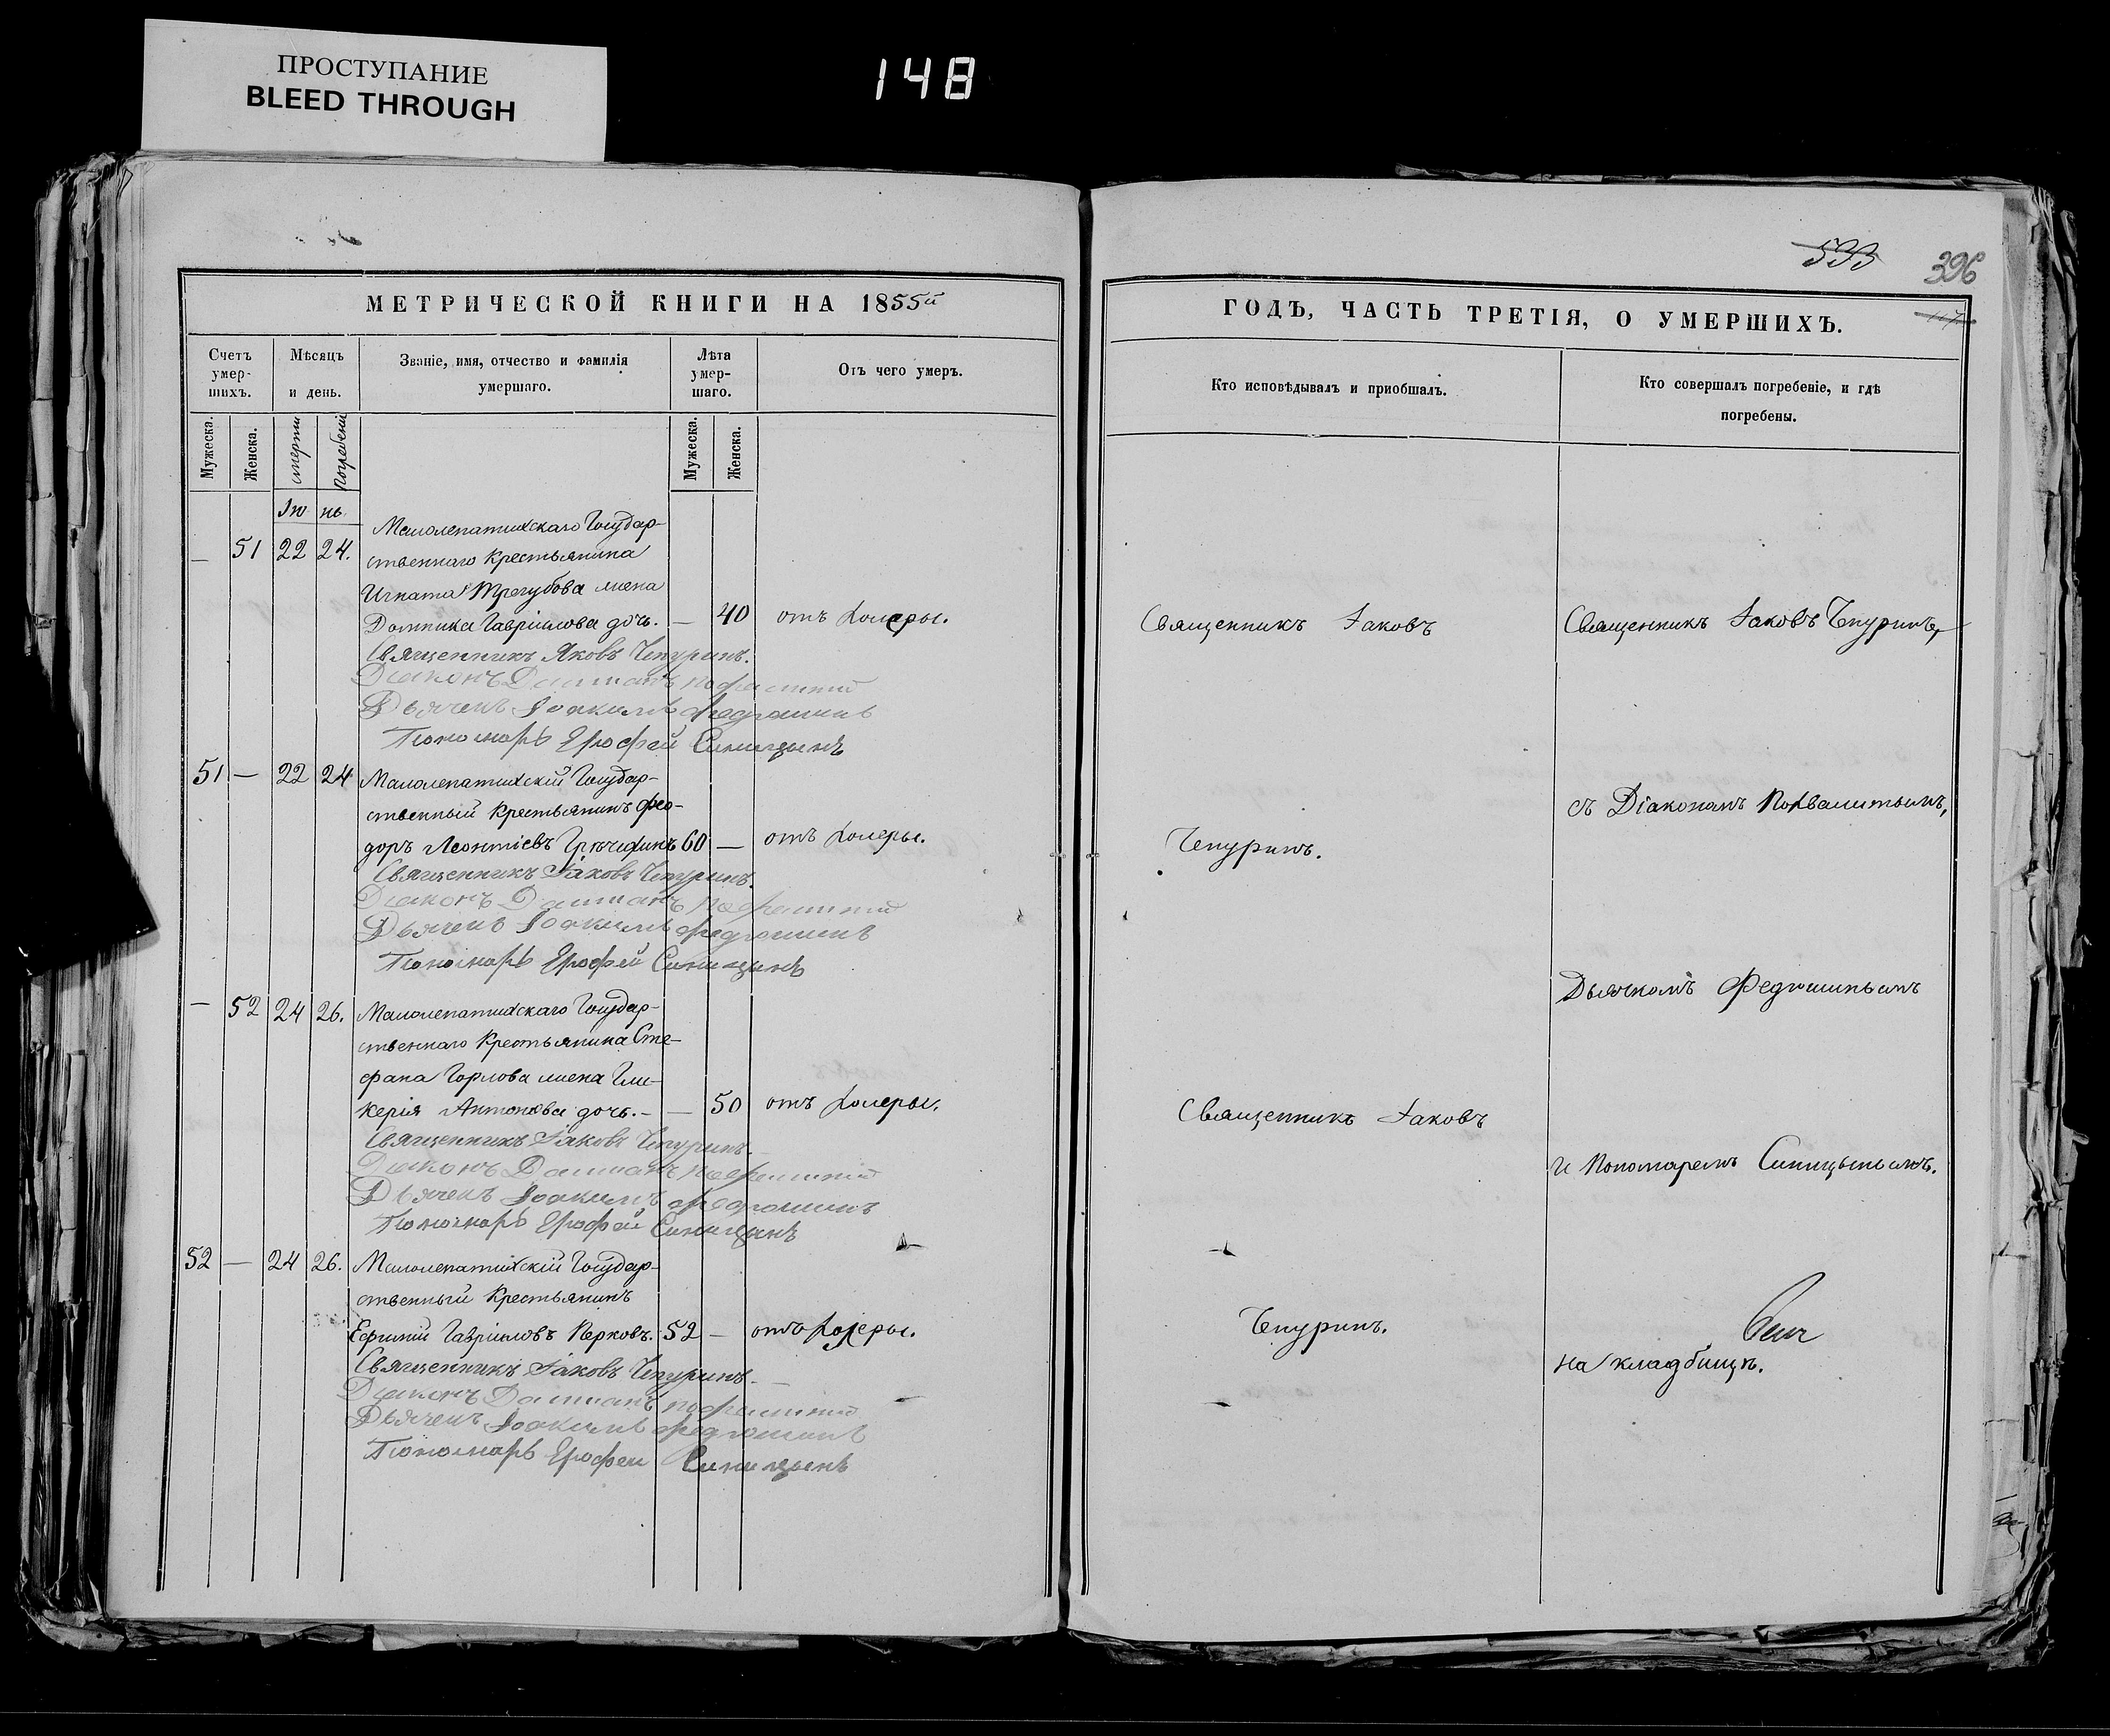 ПРОСТУПАНИЕ
BLEED THROUGH
148
533
396
МЕТРИЧЕСКОЙ КНИГИ НА 1855й
ГОДЪ, ЧАСТЬ ТРЕТІЯ, О УМЕРШИХЪ.
Счетъ умер-
шихъ.
Мѣсяцъ
и день.
Званіе, имя, отчество и фамилія
умершаго.
Лѣта
умер-
шаго.
Отъ чего умеръ.
Кто исповѣдывалъ и пріобщалъ.
Кто совершалъ погребеніе, и гдѣ
погребены.
Мужеска.
Женска.
смерти
погребенія
Мужеска.
Женска.
Іюнь
Малолепатихскаго Государ-
— 51 22 24. ственнаго крестьянина
Игната Трегубова жена
Домника Гавріилова дочь. — 40 отъ холеры.
Священникъ Іаковъ
Священникъ Іаковъ Чепуринъ,
Священникъ Яковъ Чепуринъ.
Діаконъ Даміанъ
Дьячекъ Іоакимъ Федюшинъ
Пономарь Ерофей Синицынъ
51 — 22 24 Малолепатихскій Государ-
ственный крестьянинъ Фео-
доръ Леонтіевъ 60 — отъ холеры.
Чепуринъ.
съ Діакономъ Похвалитымъ,
Священникъ Іаковъ Чепуринъ.
Діаконъ Даміанъ
Дьячекъ Іоакимъ Федюшинъ
Пономарь Ерофей Синицынъ
— 52 24 26. Малолепатихскаго Государ-
ственнаго крестьянина Сте-
фана Горлова жена Гли-
керія Антонова дочь. — — 50 отъ холеры.
Священникъ Іаковъ
Дьячкомъ Федюшинымъ
Священникъ Іаковъ Чепуринъ.
Діаконъ Даміанъ
Дьячекъ Іоакимъ Федюшинъ
Пономарь Ерофей Синицынъ
и Пономаремъ Синицынымъ.
52 — 24 26. Малолепатихскій Государ-
ственный крестьянинъ
Ефимій Гавріиловъ Перковъ. 52 — отъ холеры.
Чепуринъ.
на кладбищѣ.
Священникъ Іаковъ Чепуринъ.
Діаконъ Даміанъ
Дьячекъ Іоакимъ Федюшинъ
Пономарь Ерофей Синицынъ